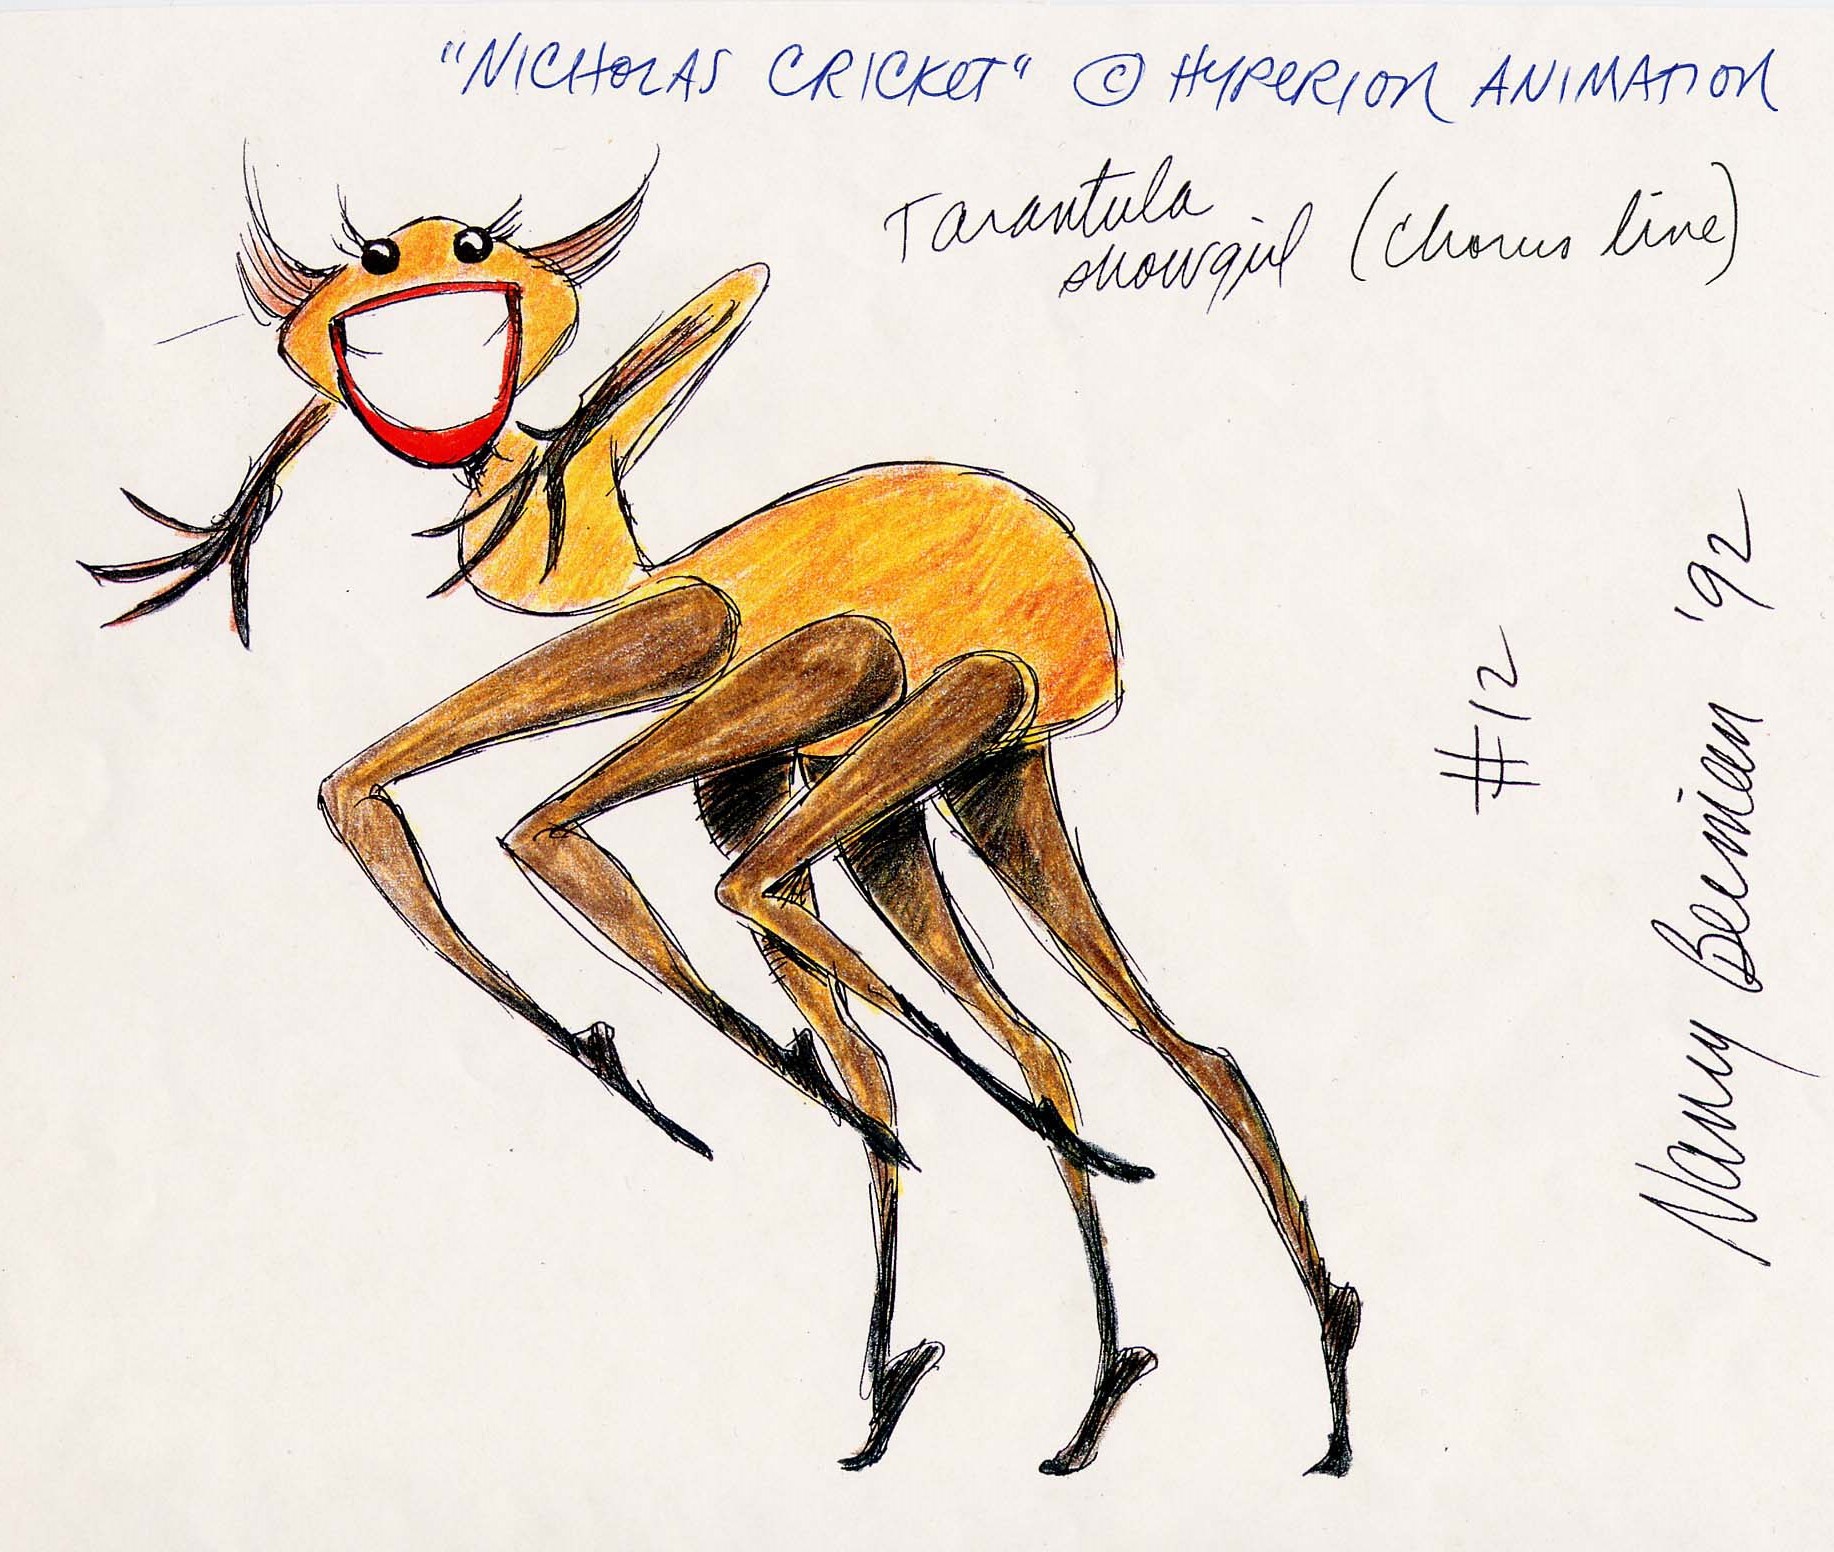 "NICHOLAS CRICKET" © HYPERION ANIMATION
Tarantula
showgirl (chorus line)
#12
Nancy Beiman '92